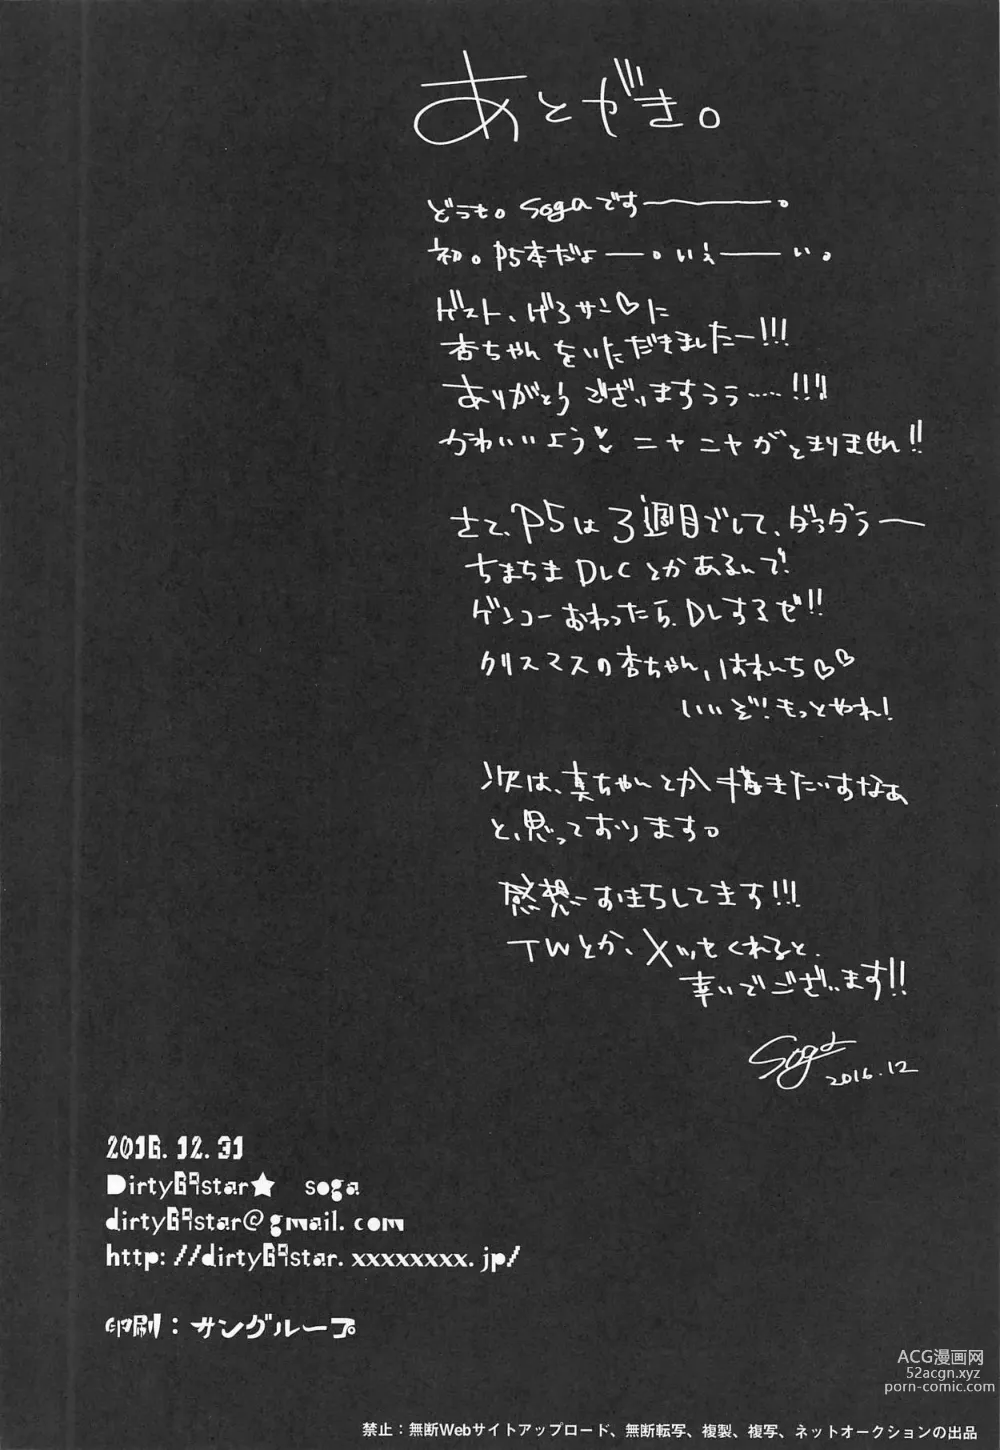 あとがき。
どうも。Sogaです――――。
初。P5本だよ――。いえ――い。
ゲスト、げろサン♡に
杏ちゃんをいただきましたー!!!
ありがとう ございますうう……!!!
かわいいよう♥ ニヤニヤがとまりません!!
さて、P5は3週目でして、ダラダラ〜
ちまちま DLCとかあるんで!
ゲンコーおわったら、DLするぜ!!
クリスマスの杏ちゃん、はれんち♡♡
いいぞ!もっとやれ!
次は、真ちゃんとか描きたいすなあ
と、思っております。
感想おまちしてます!!!
TWとか、メッセくれると、
幸いでございます!!
Soga
2016.12
2016.12.31
Dirty69star★ soga
dirty69star@gmail.com
http://dirty69star.xxxxxxxx.jp/
印刷：サングループ
ACG漫画网
52acgn.xyz
porn-comic.com
禁止：無断Webサイトアップロード、無断転写、複製、複写、ネットオークションの出品